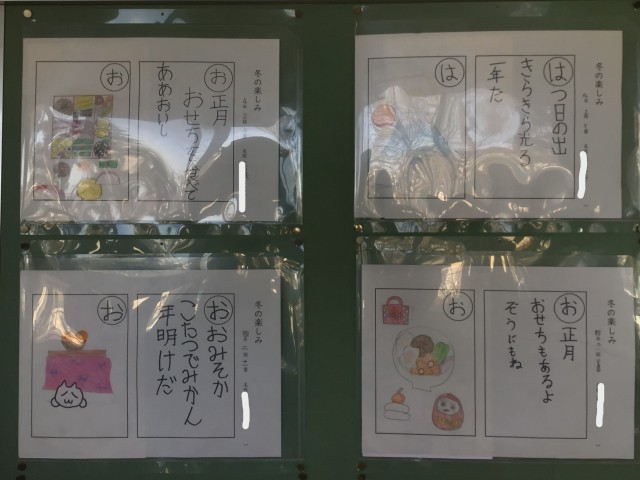 冬の楽しみ
お正月
おせちをたべて
ああおいし
お
冬の楽しみ
はつ日の出
きらきら光る
一年だ
は
冬の楽しみ
おおみそか
こたつでみかん
年明けだ
お
冬の楽しみ
お正月
おせちもあるよ
ぞうにもね
お